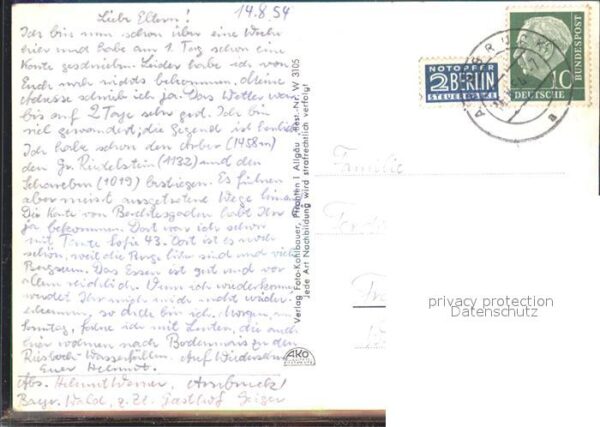 14.8.54
Liebe Eltern!
Ich bin nun schon über eine Woche
hier und habe am 1. Tag schon eine
Karte geschrieben. Leider habe ich von
Euch noch nichts bekommen. Meine
Adresse schrieb ich ja. Das Wetter war
bis auf 2 Tage sehr gut. Ich bin
viel gewandert, die Gegend ist herrlich.
Ich habe schon den Arber (1458m)
den Gr. Riedelstein (1132) und den
Schareben (1019) bestiegen. Es führen
aber meist ausgetretene Wege hinauf.
Die Karte von Berchtesgaden habt Ihr
ja bekommen. Dort war ich schon
mit Tante Sofie 43. Dort ist es noch
schön, weil die Berge höher sind und viele
Bergseen. Das Essen ist gut und vor
allem reichlich. Wenn ich wiederkomme
werdet Ihr mich nicht wieder-
erkennen, so dick bin ich. Morgen, am
Sonntag, fahre ich mit Leuten, die auch
hier wohnen nach Bodenmais zu den
Riesbach-Wasserfällen. Auf Wiedersehen
Euer Helmut.
Abs. Helmut Werner, Arnbruck/
Bayr. Wald, z. Zt. Gasthof Geiger
Verlag Foto-Kohlbauer, Pfronten | Allgäu Best.-Nr. W 3105
Jede Art Nachbildung wird strafrechtlich verfolgt
AKO
NOTOPFER
2 BERLIN
STEUERMARKE
10
DEUTSCHE
BUNDESPOST
a
Familie
privacy protection
Datenschutz